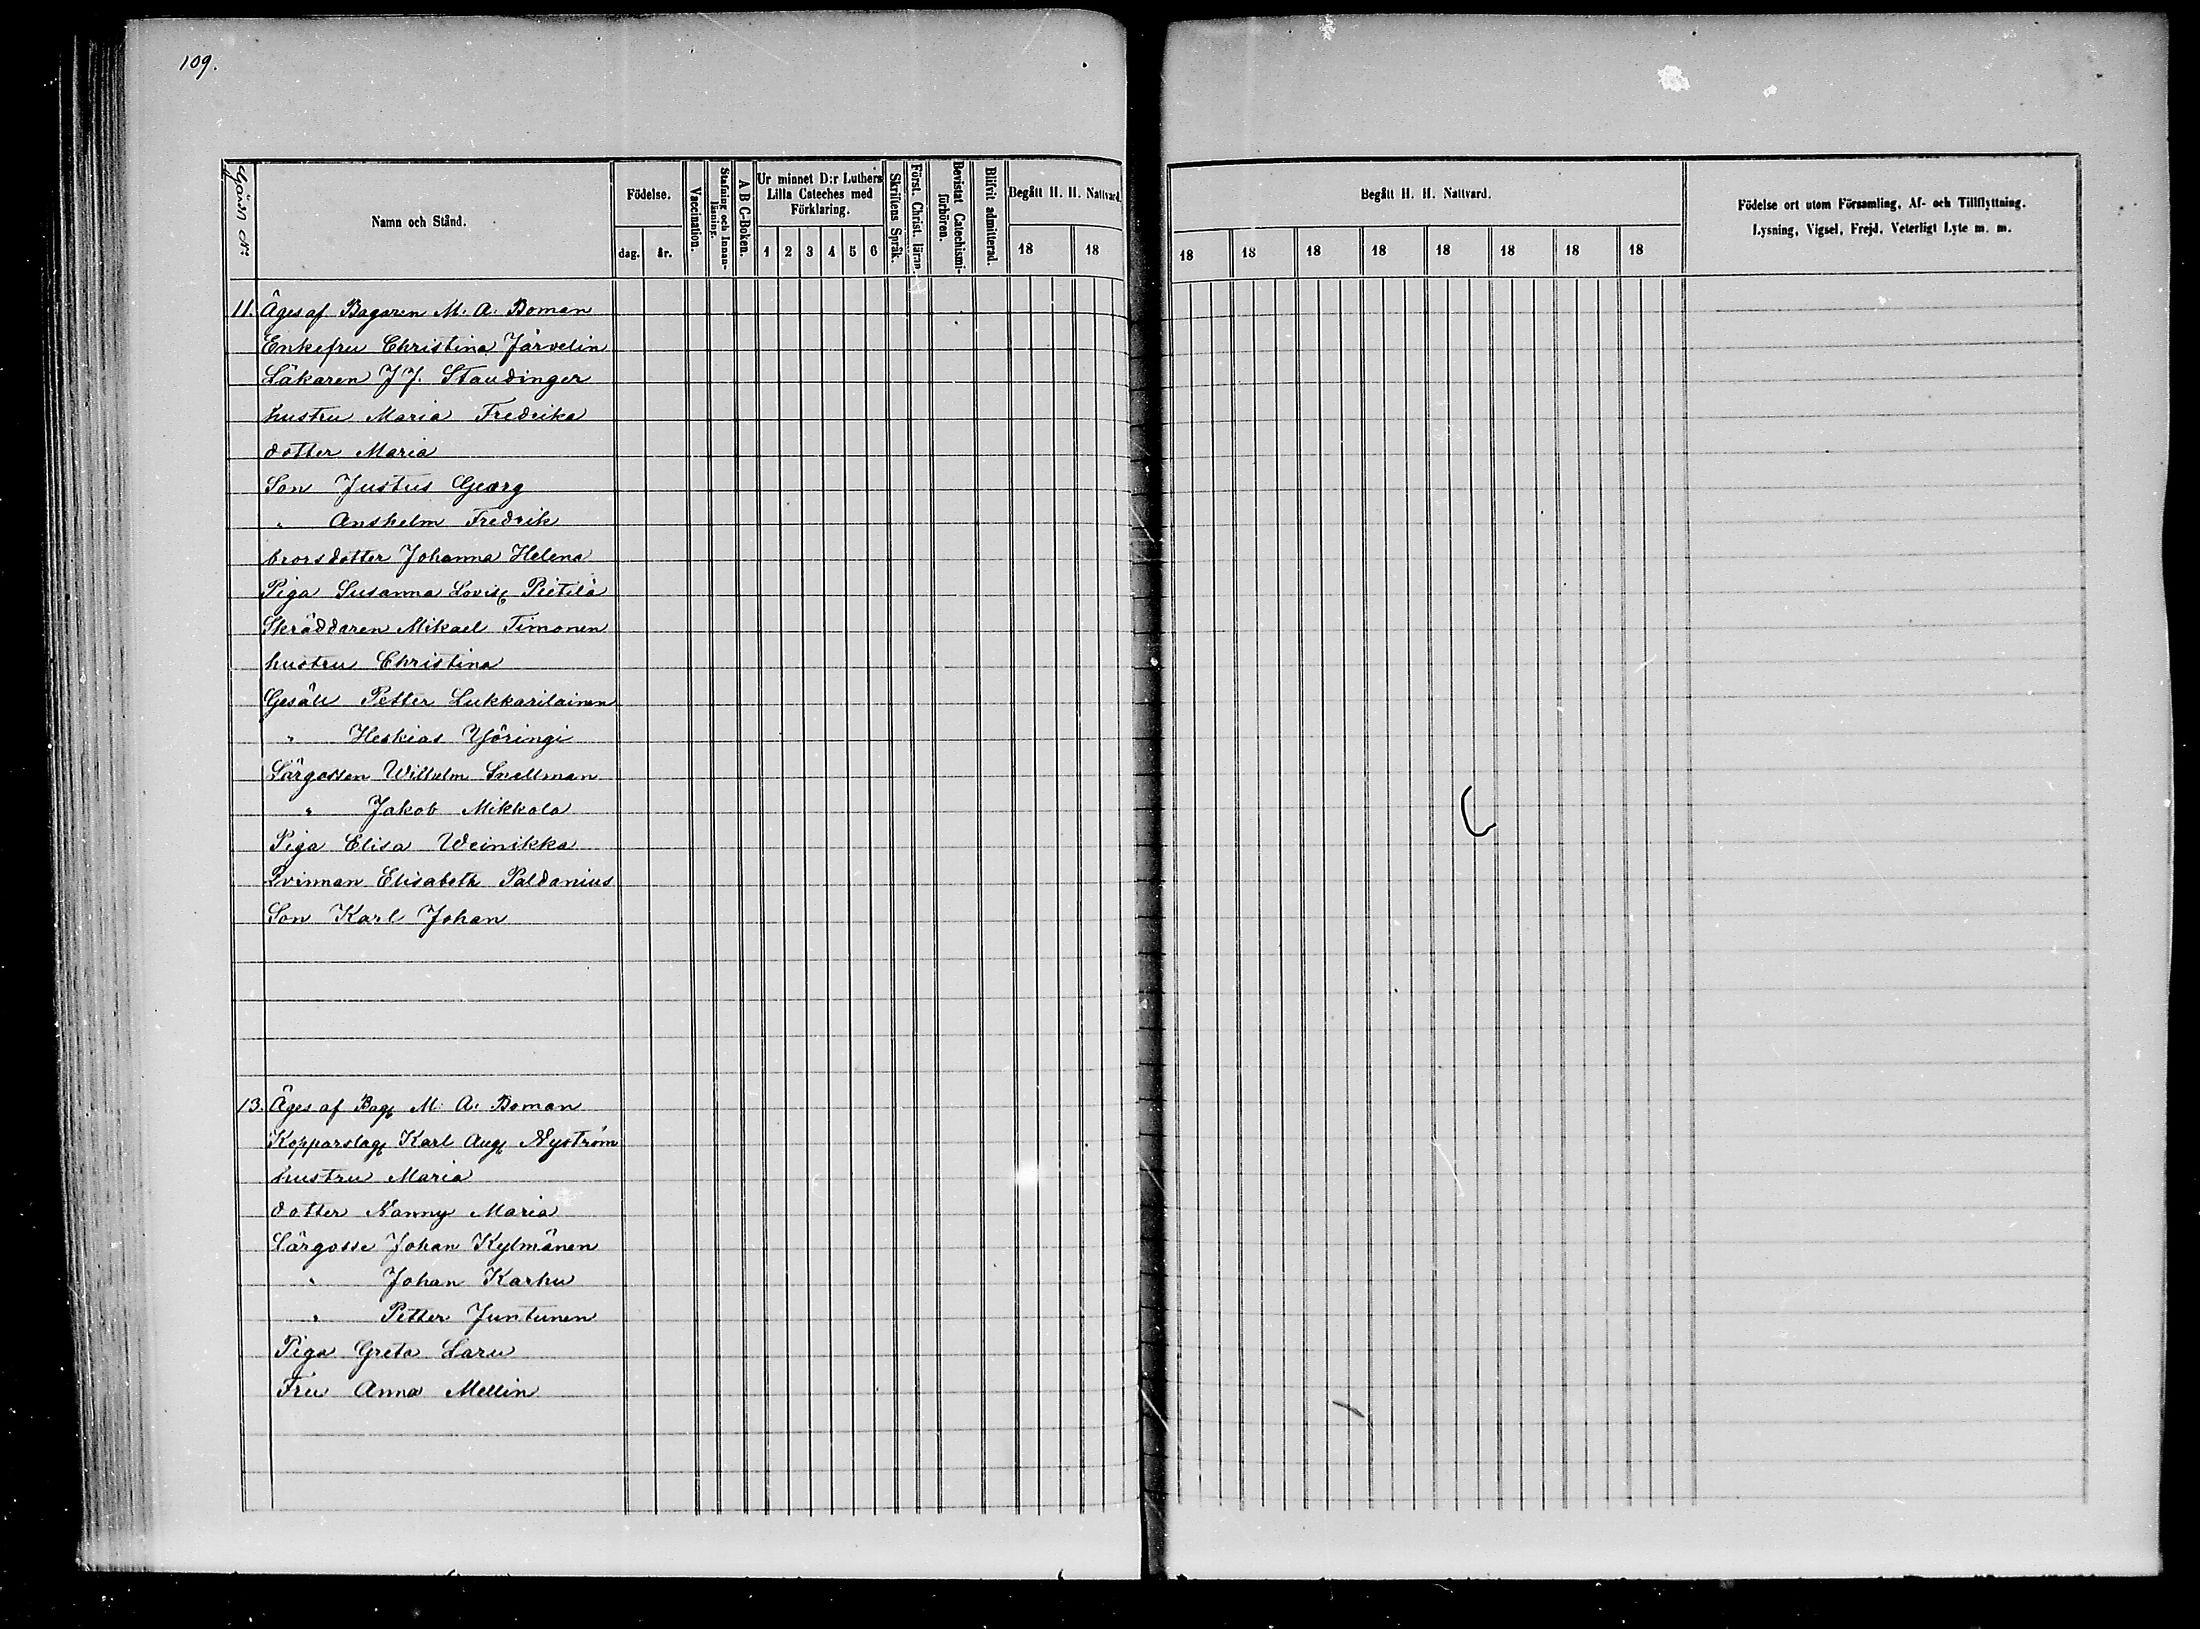 109.
Gård N:
Namn och Stånd.
Födelse.
dag.
år.
Vaccination.
Stafning och Innan-läsning.
A B C-Boken.
Ur minnet D:r Luthers
Lilla Cateches med
Förklaring.
1 2 3 4 5 6
Skriftens Språk.
Först. Christ. läran.
Bevistat Catechismi-förhören.
Blifvit admitterad.
Begått H. H. Nattvard.
18 18
Begått H. H. Nattvard.
18 18 18 18 18 18 18 18
Födelse ort utom Församling, Af- och Tillflyttning.
Lysning, Vigsel, Frejd, Veterligt Lyte m. m.
11. Äges af Bagaren M. A. Boman
Enkefru Christina Järvelin
Läkaren J J. Staudinger
hustru Maria Fredrika
dotter Maria
Son Justus Georg
" Anshelm Fredrik
brorsdotter Johanna Helena
Piga Susanna Lovis Pietilä
Skräddaren Mikael Timonen
hustru Christina
Gesäll Petter Lukkarilainen
" Heskias Yöringi
Lärgossen Wilhelm Snellman
" Jakob Mikkola
Piga Elisa Weinikka
Qvinnan Elisabeth Paldanius
Son Karl Johan
13. Äges af Bag M. A. Boman
Kopparslag Karl Aug Nyström
hustru Maria
dotter Nanny Maria
Lärgosse Johan Kylmänen
" Johan Karhu
" Petter Juntunen
Piga Greta Laru
Fru Anna Mellin